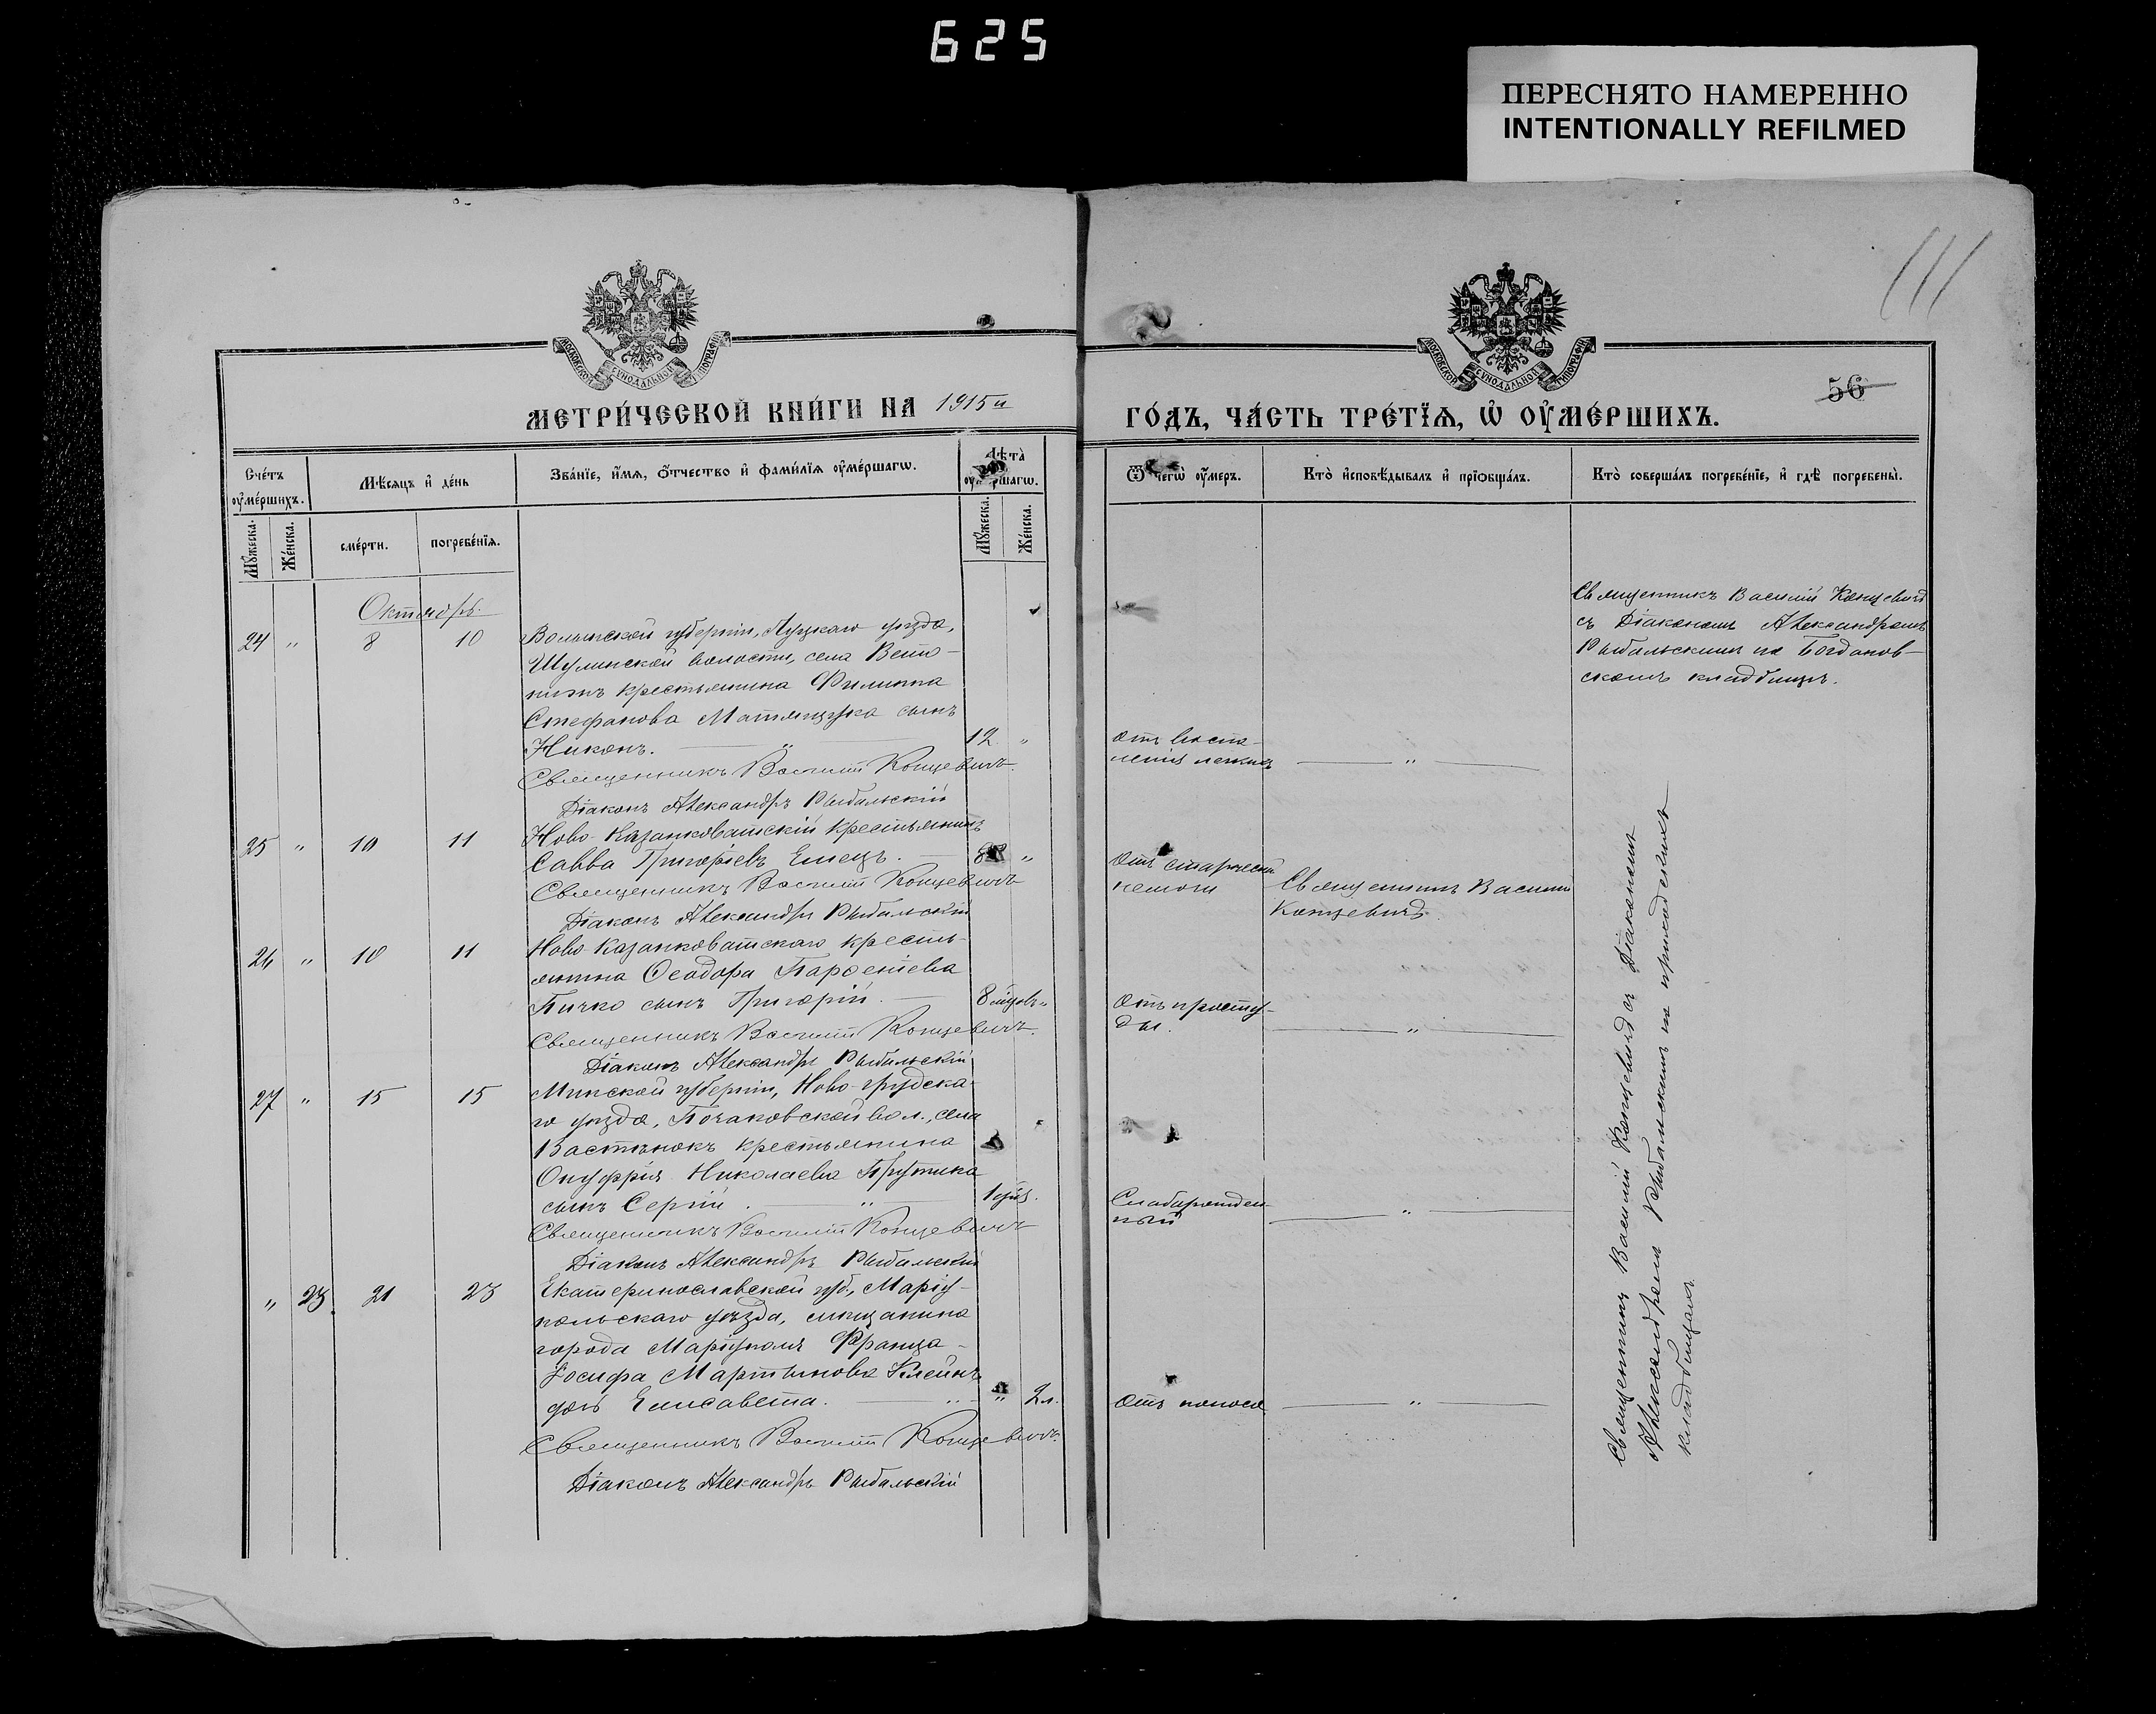 625
ПЕРЕСНЯТО НАМЕРЕННО
INTENTIONALLY REFILMED
111
МОСКОВСКОЙ СѴНОДАЛЬНОЙ ТИПОГРАФІИ
МОСКОВСКОЙ СѴНОДАЛЬНОЙ ТИПОГРАФІИ
56
МЕТРИ́ЧЕСКОЙ КНИ́ГИ НА 1915й
ГО́ДЪ, ЧА́СТЬ ТРЕ́ТЇѦ, Ѡ҆ ОУ҆МЕ́РШИХЪ.
Сче́тъ оу҆ме́ршихъ.
Мѣ́сѧцъ и҆ де́нь
Зва́нїе, и҆́мѧ, ѻ҆́тчество и҆ фами́лїѧ оу҆ме́ршагѡ.
Лѣта̀ оу҆ме́ршагѡ.
Ѿ чегѡ̀ оу҆́меръ.
Кто̀ и҆сповѣ́дывалъ и҆ прїѡбща́лъ.
Кто̀ соверша́лъ погребе́нїе, и҆ гдѣ̀ погребены̀.
Мꙋ́жеска.
Же́нска.
сме́рти.
погребе́нїѧ.
Мꙋ́жеска.
Же́нска.
Октябрь.
24 " 8 10
Волынской губерніи, Луцкаго уѣзда,
села
крестьянина Филиппа
Стефанова Матящука сынъ
Никонъ. — " — 12 "
Священникъ Василій Концевичъ.
Діаконъ Александръ Рыбальскій
отъ воспа-
ленія легкихъ
— " —
Священникъ Василій Концевичъ
съ Діакономъ Александромъ
Рыбальскимъ на Богданов-
скомъ кладбищѣ.
25 " 10 11
Ново-Казанковатскій крестьянинъ
Савва Григоріевъ Емецъ. — "
Священникъ Василій Концевичъ
Діаконъ Александръ Рыбальскій
отъ старческой
немощи
Священникъ Василій
Концевичъ.
26 " 10 11
Ново-Казанковатскаго кресть-
янина Ѳеодора Парѳеніева
Пичко сынъ Григорій. — 8 мѣсяц. "
Священникъ Василій Концевичъ.
Діаконъ Александръ Рыбальскій
Отъ просту-
ды.
— " —
27 " 15 15
Минской губерніи, Ново-грудска-
го уѣзда, вол., села
крестьянина
Онуфрія Николаева Прутика
сынъ Сергій. — " —
Священникъ Василій Концевичъ
Діаконъ Александръ Рыбальскій
Слаборожден-
ный
— " —
" 23. 21 23
Екатеринославской губ., Маріу-
польскаго уѣзда, мѣщанина
города Маріуполя Франца-
Іосифа Мартынова Клейнъ
дочь Елисавета. — " 2 л.
Священникъ Василій Концевичъ.
Діаконъ Александръ Рыбальскій
Отъ поноса
— " —
Священникъ Василій Концевичъ съ Діакономъ
Александромъ Рыбальскимъ на приходскихъ
кладбищахъ.